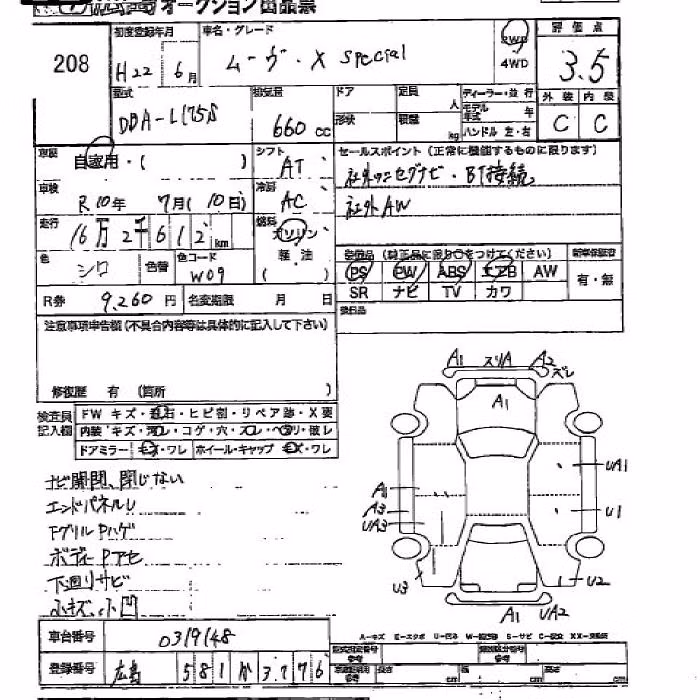 オークション出品票
208
初度登録年月
H22 6月
車名・グレード
ムーヴ・X special
2WD
4WD
評価点
3.5
型式
DBA-L175S
排気量
660 cc
ドア
形状
定員 人
積載 kg
ディーラー・並行
モデル年式 年
ハンドル 左・右
外装 内装
C C
車歴
自家用・( )
シフト
AT
セールスポイント(正常に機能するものに限ります)
社外ワンセグナビ・BT接続
社外AW
車検
R10年 7月(10日)
冷房
AC
走行
16万2千612km
燃料
ガソリン
軽・油
( )
色
シロ
色替
色コード
W09
装備品(純正品に限り○をつけてください)
PS PW ABS エアB AW
SR ナビ TV カワ
新車保証書
有・無
R券 9,260円
名変期限 月 日
後日品
注意事項申告欄(不具合内容等は具体的に記入して下さい)
修復歴 有 (箇所 )
検査員記入欄
FW キズ・飛石・ヒビ割・リペア跡・X要
内装 キズ・汚レ・コゲ・穴・スレ・ヘタリ・破レ
ドアミラー キズ・ワレ
ホイール・キャップ キズ・ワレ
ナビ開閉、閉じない
エンドパネルU
FグリルPハゲ
ボディーPアセ
下廻リサビ
小キズ、小凹
A1 スリA A2
ズレ
A1
UA1
A1
A3
UA3
U1
U3
U2
A1 UA2
車台番号 0319148
登録番号 広島 581 か 3776
型式指定番号
類別区分番号
長さ cm
幅 cm
高さ cm